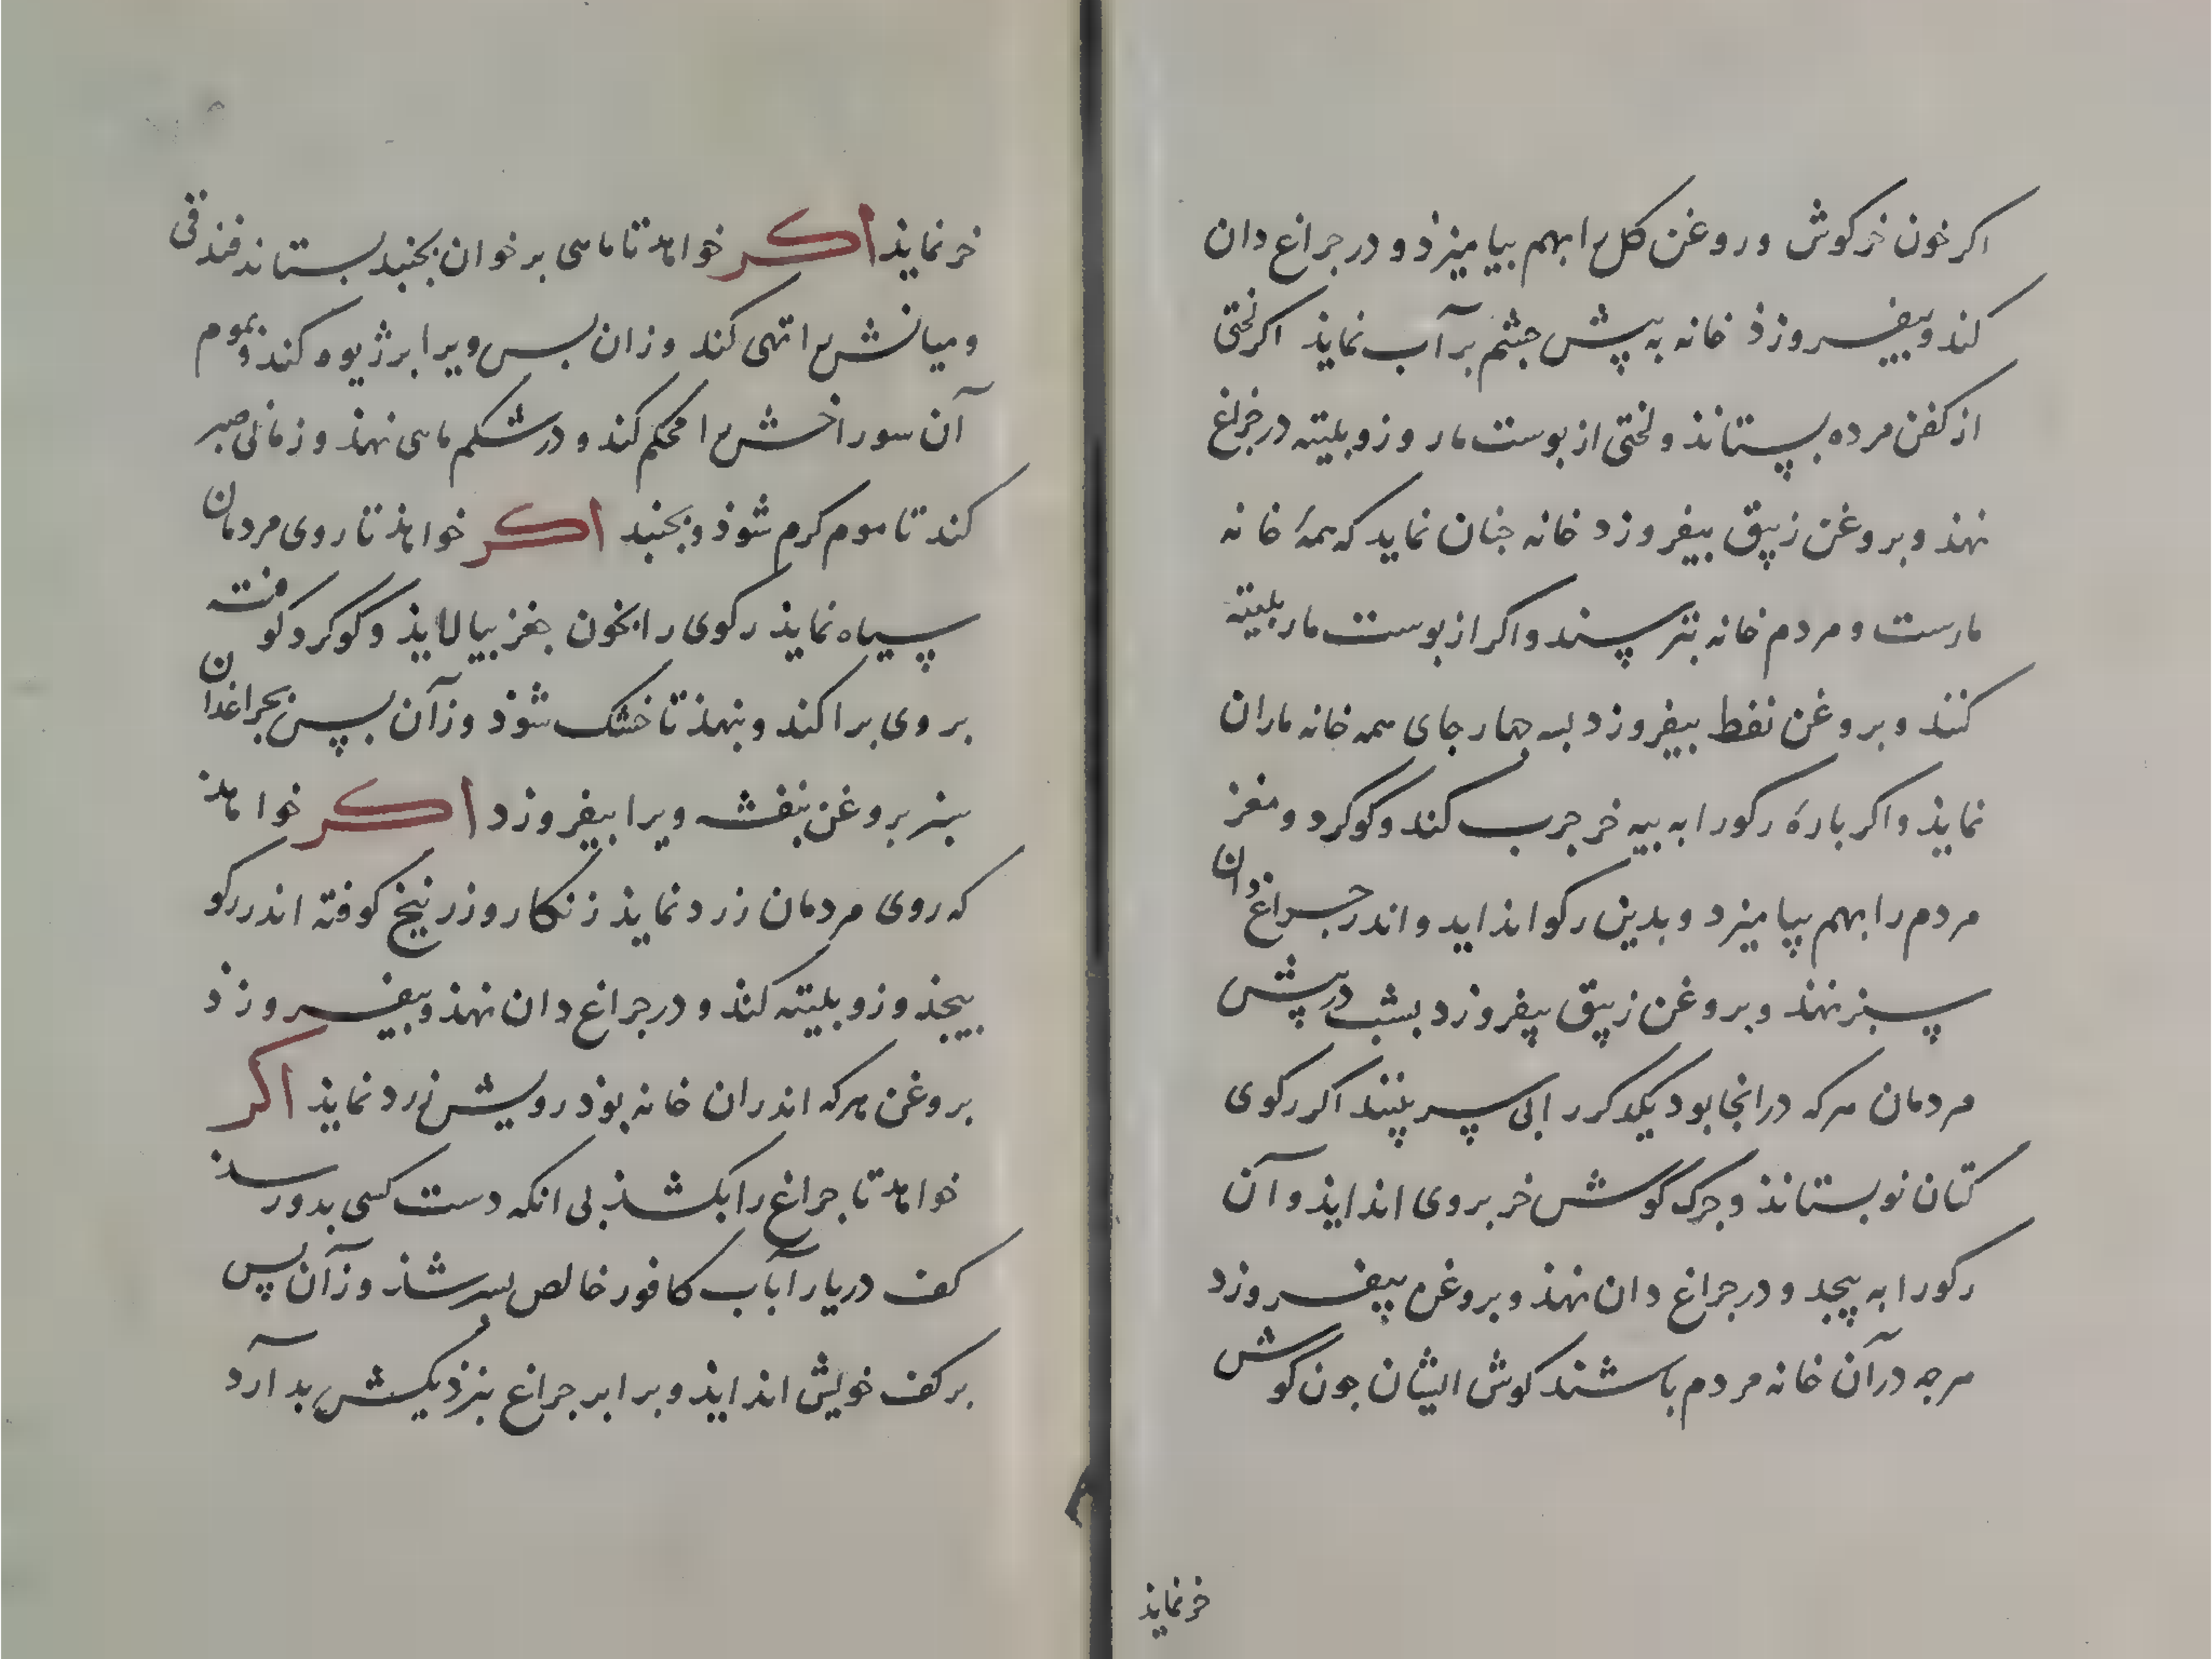 اکر خون خرکوش و روغن کل را بهم بیامیزذ و در جراغ دان
کند و بیفروزذ خانه به پیش جشم بر آب نمایذ اکر لختی
از کفن مرده بستانذ و لختی از بوست مار وزو بلیته در جراغ
نهذ و بروغن زیبق بیفروزد خانه جنان نماید که همهٔ خانه
مارست و مردم خانه بترسند و اکر از بوست مار بلیته
کنند و بروغن نفط بیفروزد بسه جهار جای همه خانه ماران
نمایذ و اکر بارهٔ رکو را به بیه خر جرب کند و کوکرد و مغز
مردم را بهم بیامیزد و بدین رکو انذاید و اندر جراغ دان
سبز نهند و بروغن زیبق بیفروزد بشب در پیش
مردمان هرکه در انجا بود یکدکر را بی سر بینند اکر رکوی
کتان نو بستانذ و جرک گوش خر بروی اندایذ و آن
رکو را به پیجد و در جراغ دان نهذ و بروغن بیفروزد
هرجه در آن خانه مردم باشند کوش ایشان جون گوش
خر نمایذ
خر نمایذ اکر خواهذ تا ماهی بر خوان بجنبد بستاند فندقی
و میانش را تهی کند وزان بس ویرا بر ژیوه کند و بموم
آن سوراخش را محکم کند و در شکم ماهی نهذ و زمانی صبر
کند تا موم کرم شوذ و بجنبد اکر خواهذ تا روی مردمان
سیاه نمایذ رکوی را بخون جغز بیالایذ و کوکرد کوفته
بروی برا کند و بنهذ تا خشک شوذ وزآن پس بجراغدان
سبز بروغن بنفشه ویرا بیفروزد اکر خواهذ
که روی مردمان زرد نمایذ زنکار و زرنیخ کوفته اندر رکو
بیجذ وزو بلیته کند و در جراغ دان نهذ و بیفروزذ
بروغن هرکه اندران خانه بوذ رویش زرد نمایذ اکر
خواهذ تا جراغ را بکشذ بی انکه دست کسی بدو رسذ
کف دریا را بآب کافور خالص بسرشذ وزآن پس
بر کف خویش اندایذ و برابر جراغ بنزدیکش بدارد